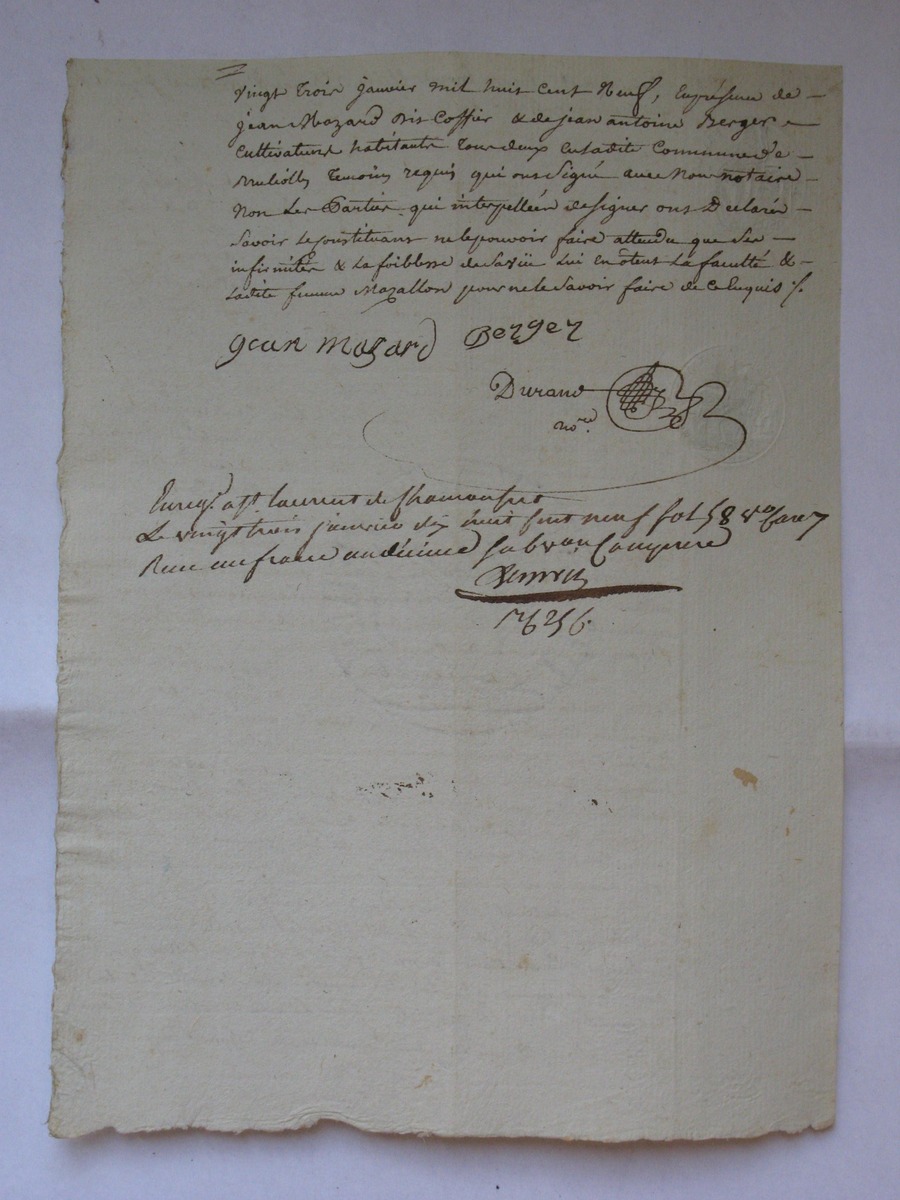 vingt trois janvier mil huit cent Neuf, en présence de
jean Mazard dit Coffier & de jean antoine Berger
Cultivateurs habitants Tous deux en ladite Commune de
temoins requis qui ont Signé avec Nous notaire
Non Les Parties qui interpellées de signer ont Déclaré
Savoir Le constituant ne le pouvoir faire attendu que Ses
infirmités & La foiblesse de Sa vüe Lui en ôtent La faculté &
Ladite femme Mazallon pour ne le Savoir faire de ce Enquis /.
jean mazard Berger
Durand
nore.
Enregé. a st. laurent de Chamousset
Le vingt trois janvier dix huit cent neuf fol 58 vo Case 7
Reçu un franc un décime Subvon. Comprise